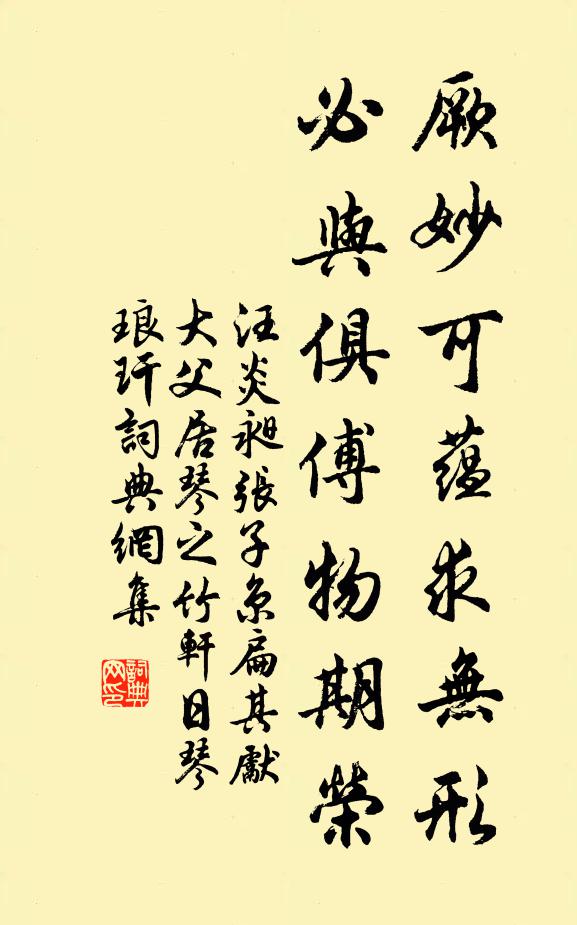 厥妙可藴求無形
必與俱傅物期榮
汪炎昶張子京扁其獻
大父居琴之竹軒日琴
琅玕詞典網集
詞典
网印